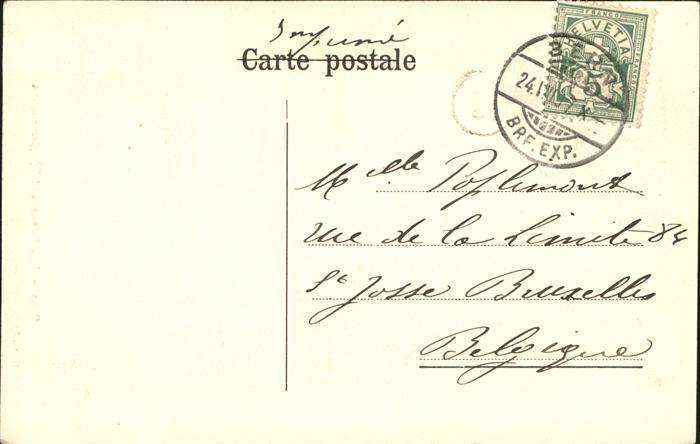 Imprimé
Carte postale
FRANCO
HELVETIA
5
BRF. EXP.
Mlle Poplemont
rue de la Limite 84
St Josse Bruxelles
Belgique